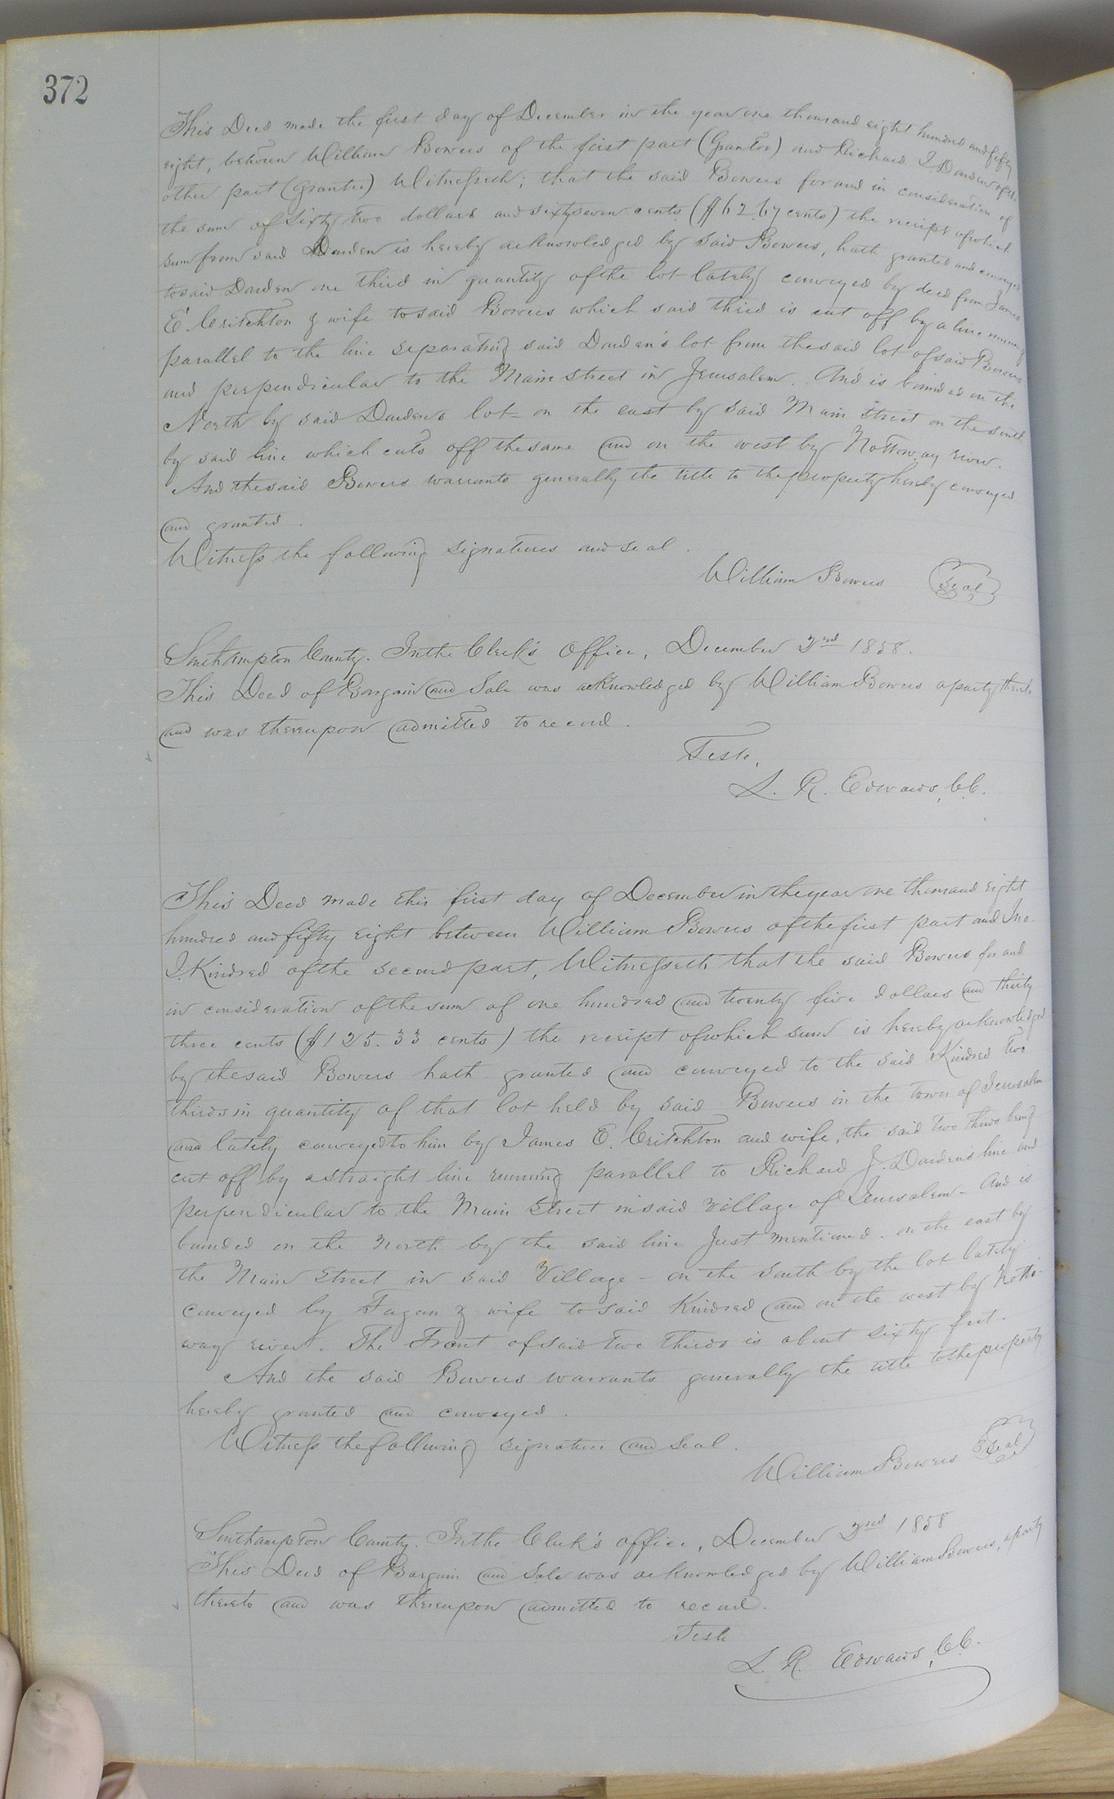 372
This Deed made the first day of December in the year one thousand eight hundred and fifty
eight, between William Bowers of the first part (Grantor) and Richard J. Darden of the
other part (Grantee) Witnesseth; that the said Bowers for and in consideration of
the sum of Sixty two dollars and sixty seven cents ($62.67 cents) the receipt of which
sum from said Darden is hereby acknowledged by said Bowers, hath granted and conveyed
to said Darden one third in quantity of the lot lately conveyed by deed from James
E. Critchton & wife to said Bowers which said third is cut off by a line running
parallel to the line separating said Darden's lot from the said lot of said Bowers
and perpendicular to the Main Street in Jerusalem. And is bounded on the
North by said Dardens lot on the east by said Main Street on the south
by said line which cuts off the same and on the west by Nottoway river.
And the said Bowers warrants generally the title to the property hereby conveyed
and granted.
Witness the following signatures and seal.
William Bowers Seal
Southampton County. In the Clerk's Office, December 2nd 1858.
This Deed of Bargain and Sale was acknowledged by William Bowers a party thereto
and was thereupon admitted to record.
Teste,
L. R. Edwards, C.C.
This Deed made this first day of December in the year one thousand eight
hundred and fifty eight between William Bowers of the first part and Jno.
J. Kindred of the second part, Witnesseth that the said Bowers for and
in consideration of the sum of one hundred and twenty five dollars and thirty
three cents ($125.33 cents) the receipt of which sum is hereby acknowledged
by the said Bowers hath granted and conveyed to the said Kindred two
thirds in quantity of that lot held by said Bowers in the town of Jerusalem
and lately conveyed to him by James E. Critchton and wife, the said two thirds being
cut off by a straight line running parallel to Richard J. Dardens line and
perpendicular to the Main Street in said village of Jerusalem - And is
bounded on the North by the said line Just mentioned - on the east by
the Main Street in said Village - on the South by the lot lately
conveyed by Fagan & wife to said Kindred and on the west by Notto-
way river. The Front of said two thirds is about sixty feet.
And the said Bowers warrants generally the title to the property
hereby granted and conveyed.
Witness the following signature and seal.
William Bowers Seal
Southampton County. In the Clerk's office, December 2nd 1858
This Deed of Bargain and Sale was acknowledged by William Bowers, a party
thereto and was thereupon admitted to record.
Teste
L. R. Edwards, C.C.